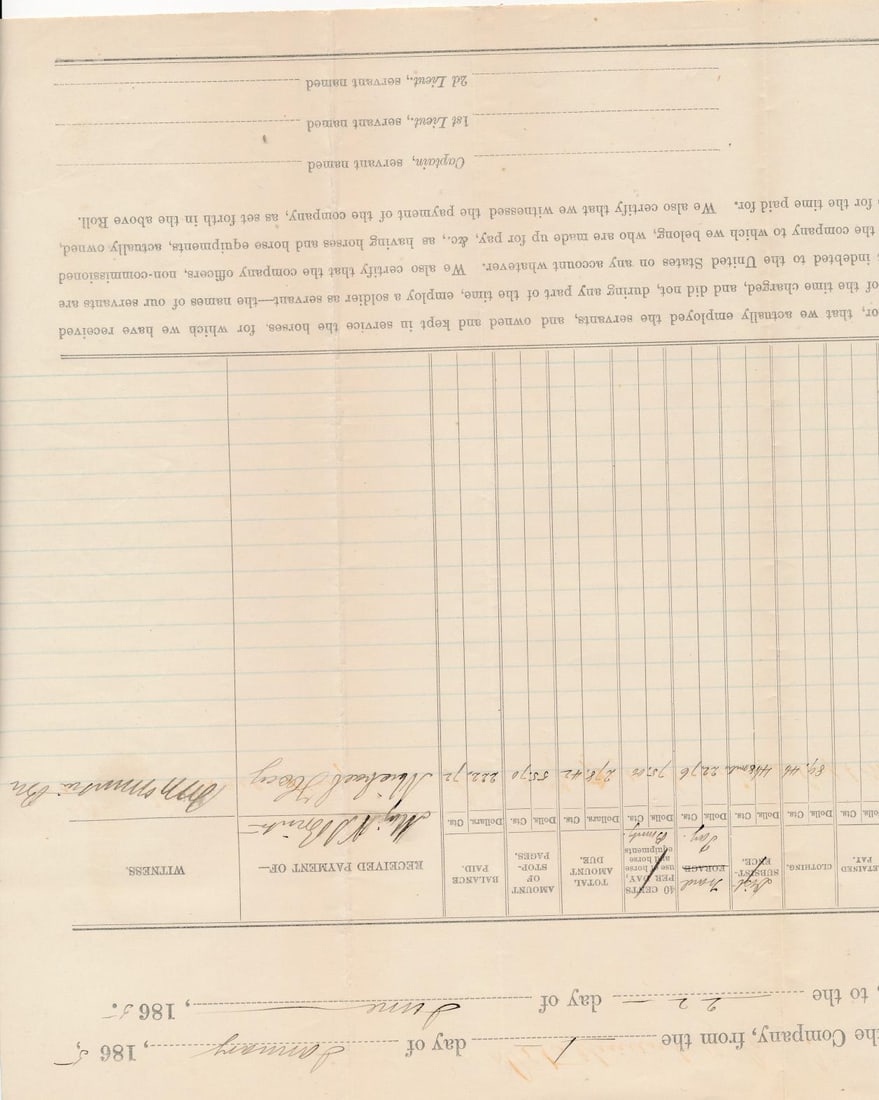 the Company, from the 1 day of January, 1865,
, to the 22 day of June, 1865.
RETAINED PAY. CLOTHING. SUBSISTENCE. FORAGE Travel Pay. 40 CENTS PER DAY, use of horse and horse equipments Bounty. TOTAL AMOUNT DUE. AMOUNT OF STOPPAGES. BALANCE PAID. RECEIVED PAYMENT OF— WITNESS.
Dolls. Cts. Dolls. Cts. Dolls. Cts. Dolls. Cts. Dolls. Cts. Dollars. Cts. Dolls. Cts. Dollars. Cts. Maj N S
22.76 75.00 278.42 55.70 222.72 Michael
or, that we actually employed the servants, and owned and kept in service the horses. for which we have received
of the time charged, and did not, during any part of the time, employ a soldier as servant—the names of our servants are
indebted to the United States on any account whatever. We also certify that the company officers, non-commissioned
the company to which we belong, who are made up for pay, &c., as having horses and horse equipments, actually owned,
for the time paid for. We also certify that we witnessed the payment of the company, as set forth in the above Roll.
Captain, servant named
1st Lieut., servant named
2d Lieut., servant named